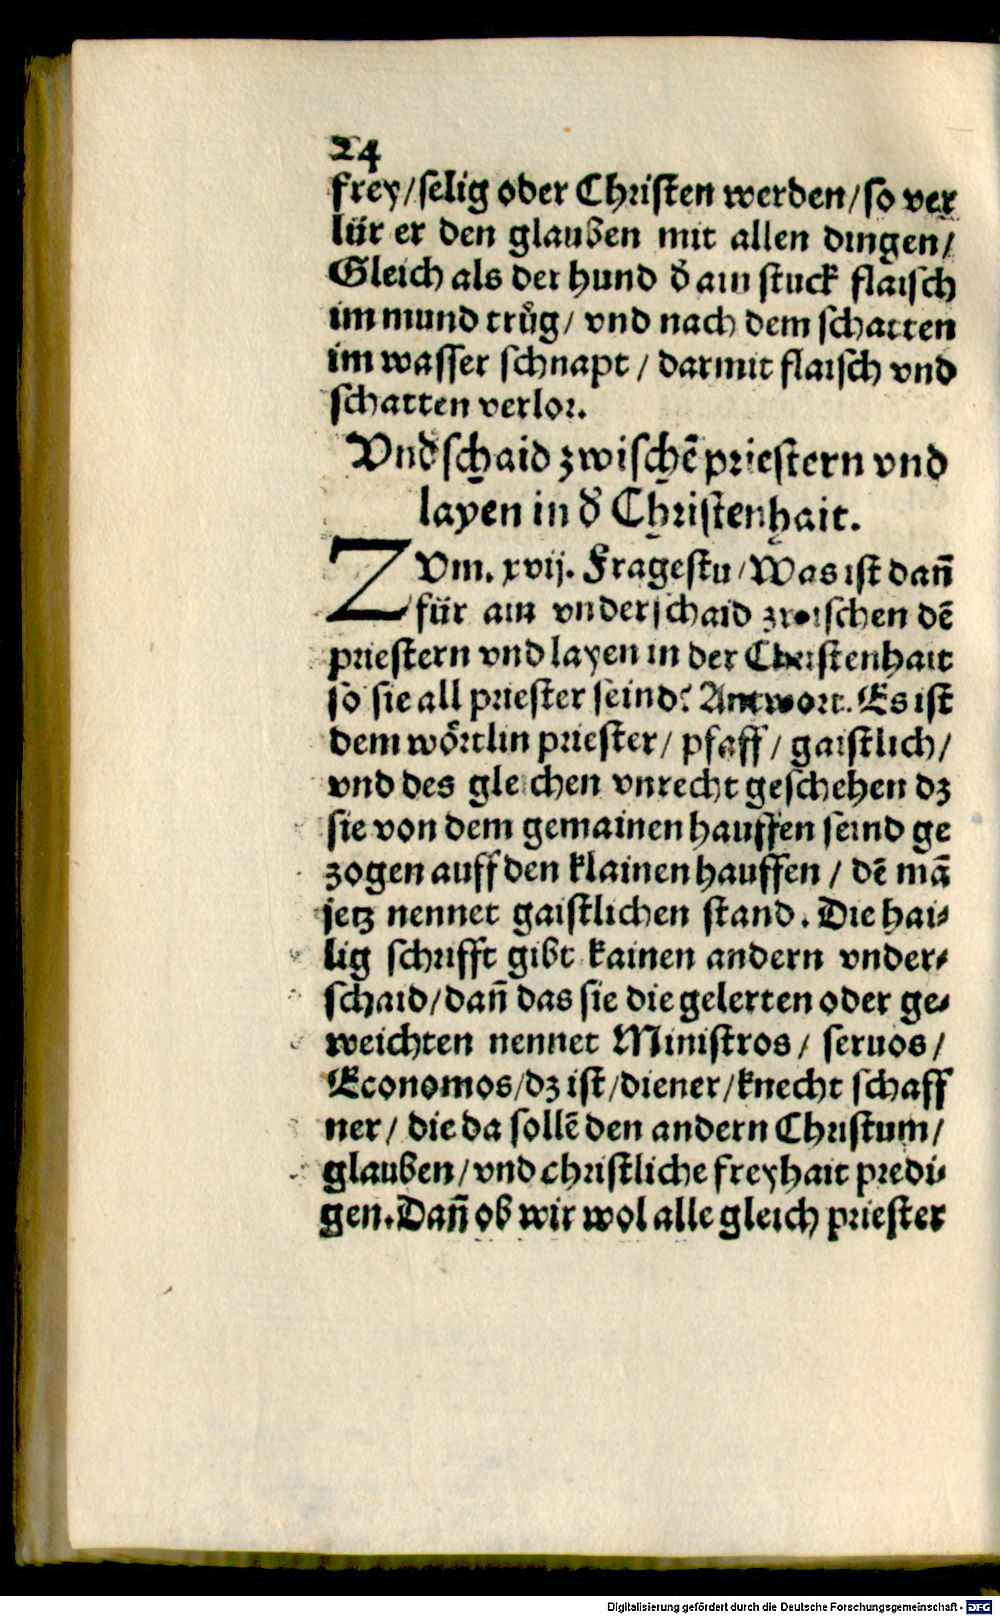 24
frey/selig oder Christen werden/so ver
lür er den glauben mit allen dingen/
Gleich als der hund d̄ ain stuck flaisch
im mund trůg/ vnd nach dem schatten
im wasser schnapt / darmit flaisch vnd
schatten verlor.
Vnd̄schaid zwischē priestern vnd
layen in d̄ Christenhait.
ZVm. xvij. Fragestu/Was ist dan̄
für ain vnderschaid zwischen dē
priestern vnd layen in der Christenhait
so sie all priester seind? Antwort. Es ist
dem wörtlin priester/ pfaff/ gaistlich/
vnd des gleichen vnrecht geschehen dz
sie von dem gemainen hauffen seind ge
zogen auff den klainen hauffen / dē mā
jetz nennet gaistlichen stand. Die hai⸗
lig schrifft gibt kainen andern vnder⸗
schaid/dan̄ das sie die gelerten oder ge⸗
weichten nennet Ministros/ seruos/
Economos/dz ist/diener/knecht schaff
ner/ die da sollē den andern Christum/
glauben/vnd christliche freyhait predi⸗
gen.Dan̄ ob wir wol alle gleich priester
Digitalisierung gefördert durch die Deutsche Forschungsgemeinschaft - DFG